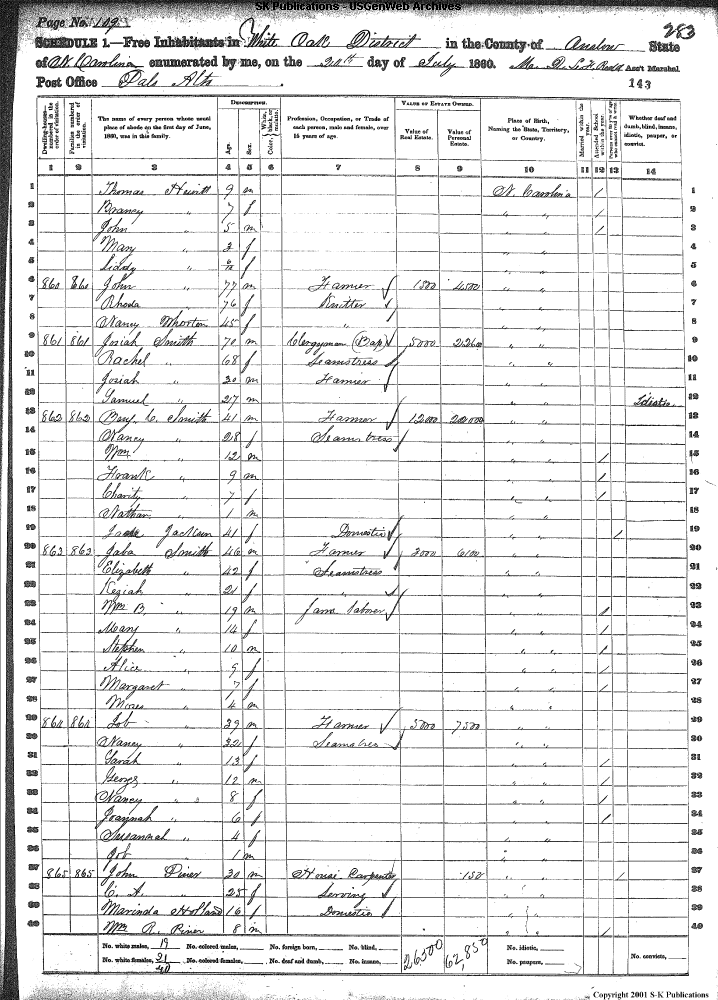 SK Publications - USGenWeb Archives
Page No. 109
283
SCHEDULE 1.—Free Inhabitants in White Oak District in the County of Onslow State
of N. Carolina enumerated by me, on the 20th day of July 1860. Ass't Marshal
Post Office Palo Alto
143
Dwelling-houses—numbered in the order of visitation.
Families numbered in the order of visitation.
The name of every person whose usual place of abode on the first day of June, 1860, was in this family.
Description.
Age.
Sex.
Color, White, black, or mulatto.
Profession, Occupation, or Trade of each person, male and female, over 15 years of age.
Value of Estate Owned.
Value of Real Estate.
Value of Personal Estate.
Place of Birth, Naming the State, Territory, or Country.
Married within the year.
Attended School within the year.
Whether deaf and dumb, blind, insane, idiotic, pauper, or convict.
1 2 3 4 5 6 7 8 9 10 11 12 13 14
1 Thomas Hewitt 9 m N. Carolina / 1
2 Brancy " 7 f " " / 2
3 John " 5 m " " / 3
4 Mary " 3 f " " 4
5 Liddy " 6/12 f " " 5
6 860 860 John " 77 m Farmer 1500 4500 " " 6
7 Rhoda " 76 f Knitter " " 7
8 Nancy Whorton 45 f " " " 8
9 861 861 Josiah Smith 70 m Clergyman (Bap) 5000 22600 " " 9
10 Rachel " 68 f Seamstress " " 10
11 Josiah " 30 m Farmer " " 11
12 Samuel " 27 m " " Idiotic 12
13 862 862 Benj. C. Smith 41 m Farmer 12000 22000 " " 13
14 Nancy " 28 f Seamstress " " 14
15 Wm " 12 m " " / 15
16 Frank " 9 m " " / 16
17 Charity " 7 f " " / 17
18 Nathan " 1 m " " 18
19 Jackson 41 f Domestic " " / 19
20 863 863 Jaba Smith 46 m Farmer 3000 6100 " " 20
21 Elizabeth " 42 f Seamstress " " 21
22 Keziah " 21 f " " " 22
23 Wm B. " 19 m farm laborer " " / 23
24 Mary " 14 f " " / 24
25 Stephen " 10 m " " / 25
26 Alice " 9 f " " / 26
27 Margaret " 7 f " " / 27
28 Moses " 4 m " " 28
29 864 864 Job " 39 m Farmer 5000 7500 " " 29
30 Nancy " 32 f Seamstress " " 30
31 Sarah " 13 f " " / 31
32 George " 12 m " " / 32
33 Nancy " 8 f " " / 33
34 Joannah " 6 f " " / 34
35 Susannah " 4 f " " 35
36 Job " 1 m " " 36
37 865 865 John Piner 30 m House Carpenter 150 " " / 37
38 C. A. " 25 f Serving " " 38
39 Marinda Holland 16 f Domestic " " 39
40 Wm R. Piner 8 m " " / 40
No. white males, 19 No. colored males, No. foreign born, No. blind, 26500 62,850 No. idiotic, No. convicts,
No. white females, 21 No. colored females, No. deaf and dumb, No. insane, No. paupers,
40
Copyright 2001 S-K Publications